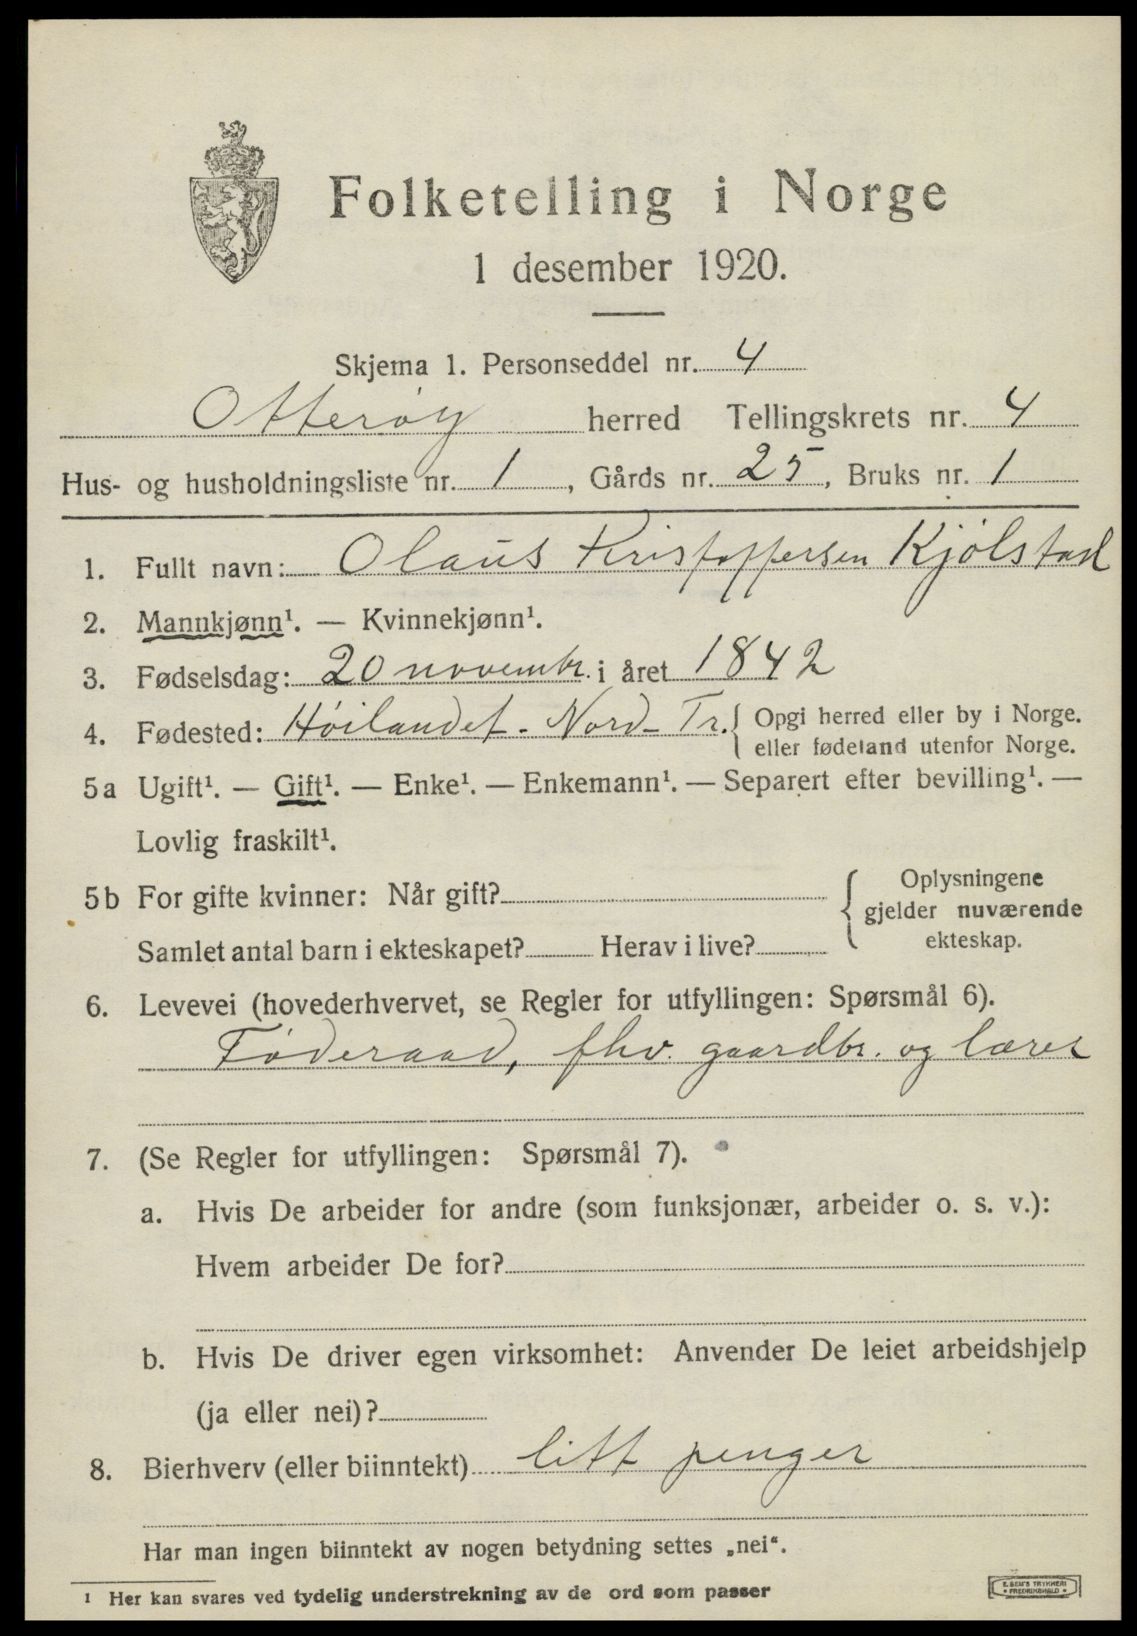 Folketelling i Norge
1 desember 1920.
Skjema 1. Personseddel nr. 4
Otterøy herred Tellingskrets nr. 4
Hus- og husholdningsliste nr. 1, Gårds nr. 25, Bruks nr. 1
1. Fullt navn: Olaus Kristoffersen Kjølstad
2. Mannkjønn¹. — Kvinnekjønn¹.
3. Fødselsdag: 20 novembr. i året 1842
4. Fødested: Høilandet - Nord- Tr. { Opgi herred eller by i Norge.
eller fødeland utenfor Norge.
5a Ugift¹. — Gift¹. — Enke¹. — Enkemann¹. — Separert efter bevilling¹. —
Lovlig fraskilt¹.
5b For gifte kvinner: Når gift? { Oplysningene
gjelder nuværende
Samlet antal barn i ekteskapet? Herav i live? ekteskap.
6. Levevei (hovederhvervet, se Regler for utfyllingen: Spørsmål 6).
Føderaad, fhv. gaardbr. og lærer
7. (Se Regler for utfyllingen: Spørsmål 7).
a. Hvis De arbeider for andre (som funksjonær, arbeider o. s. v.):
Hvem arbeider De for?
b. Hvis De driver egen virksomhet: Anvender De leiet arbeidshjelp
(ja eller nei)?
8. Bierhverv (eller biinntekt) litt penger
Har man ingen biinntekt av nogen betydning settes „nei“.
¹ Her kan svares ved tydelig understrekning av de ord som passer
E. SEM'S TRYKKERI
• FREDRIKSHALD •